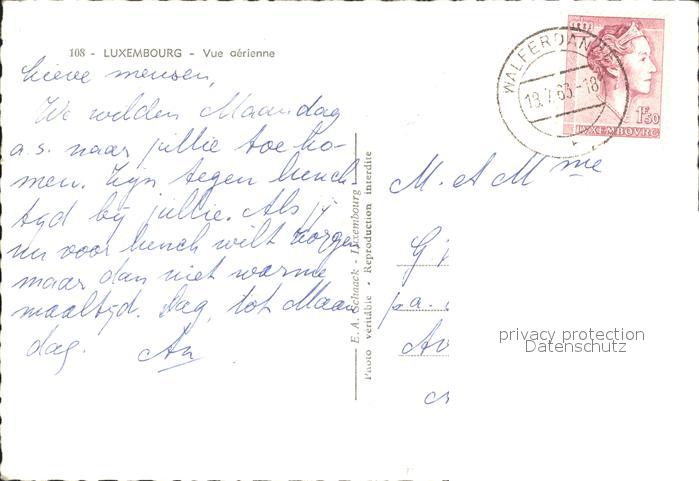 108 - LUXEMBOURG - Vue aérienne
Lieve mensen,
We wilden Maandag
a.s. naar jullie toe ko-
men. Zijn tegen lunch
tijd bij jullie. Als jij
nu voor lunch wilt zorgen
maar dan niet warme
maaltijd. Dag, tot Maan
dag. An
E. A. Schaack - Luxembourg
Photo véritable - Reproduction interdite
WALFERDANGE
19.7.63-18
1F50
LUXEMBOURG
M. A M me
G
pa.
Av
privacy protection
Datenschutz